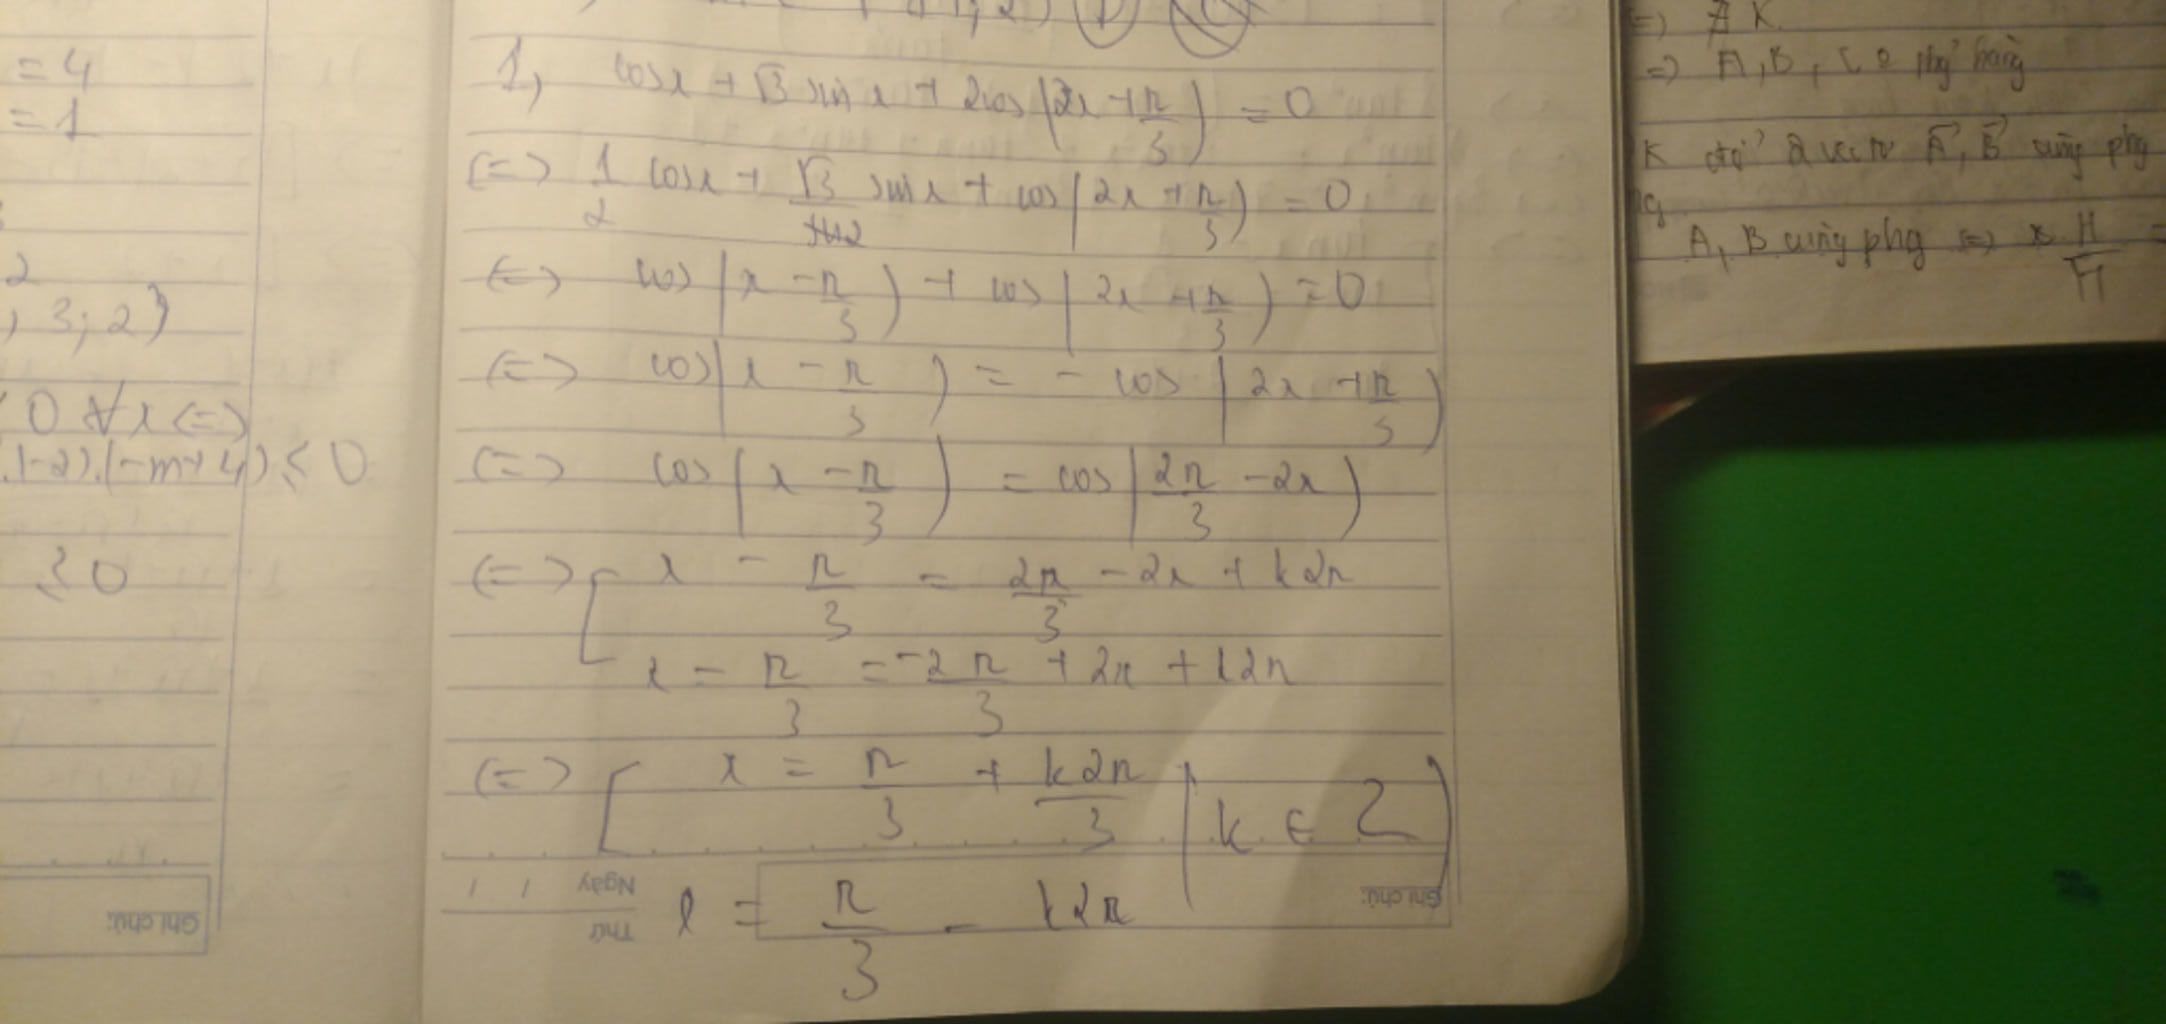 = 4
= 1
2
, 3; 2}
0 ∀x (=)
.1-2).(-m+4) ≤ 0
≤ 0
1, cosx + √3 sin x + 2cos(2x + π/3) = 0
(=) 1/2 cosx + √3/2 sin x + cos(2x + π/3) = 0
(=) cos(x - π/3) + cos(2x + π/3) = 0
(=) cos(x - π/3) = - cos(2x + π/3)
(=) cos(x - π/3) = cos(2π/3 - 2x)
(=) [ x - π/3 = 2π/3 - 2x + k2π
x - π/3 = -2π/3 + 2x + k2π
(=) [ x = π/3 + k2π/3 (k ∈ Z)
x = π/3 - k2π
Ghi chú:
Ngày / /
Thứ
Ghi chú:
=) ∄ K.
=) A, B, C
K để 2 vectơ A, B cùng phg
A, B cùng phg (=)